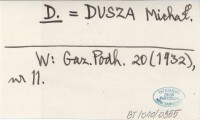 D. = DUSZA Michał.
W: Gaz. Podh. 20 (1932),
nr 11.
BJ/010/0355